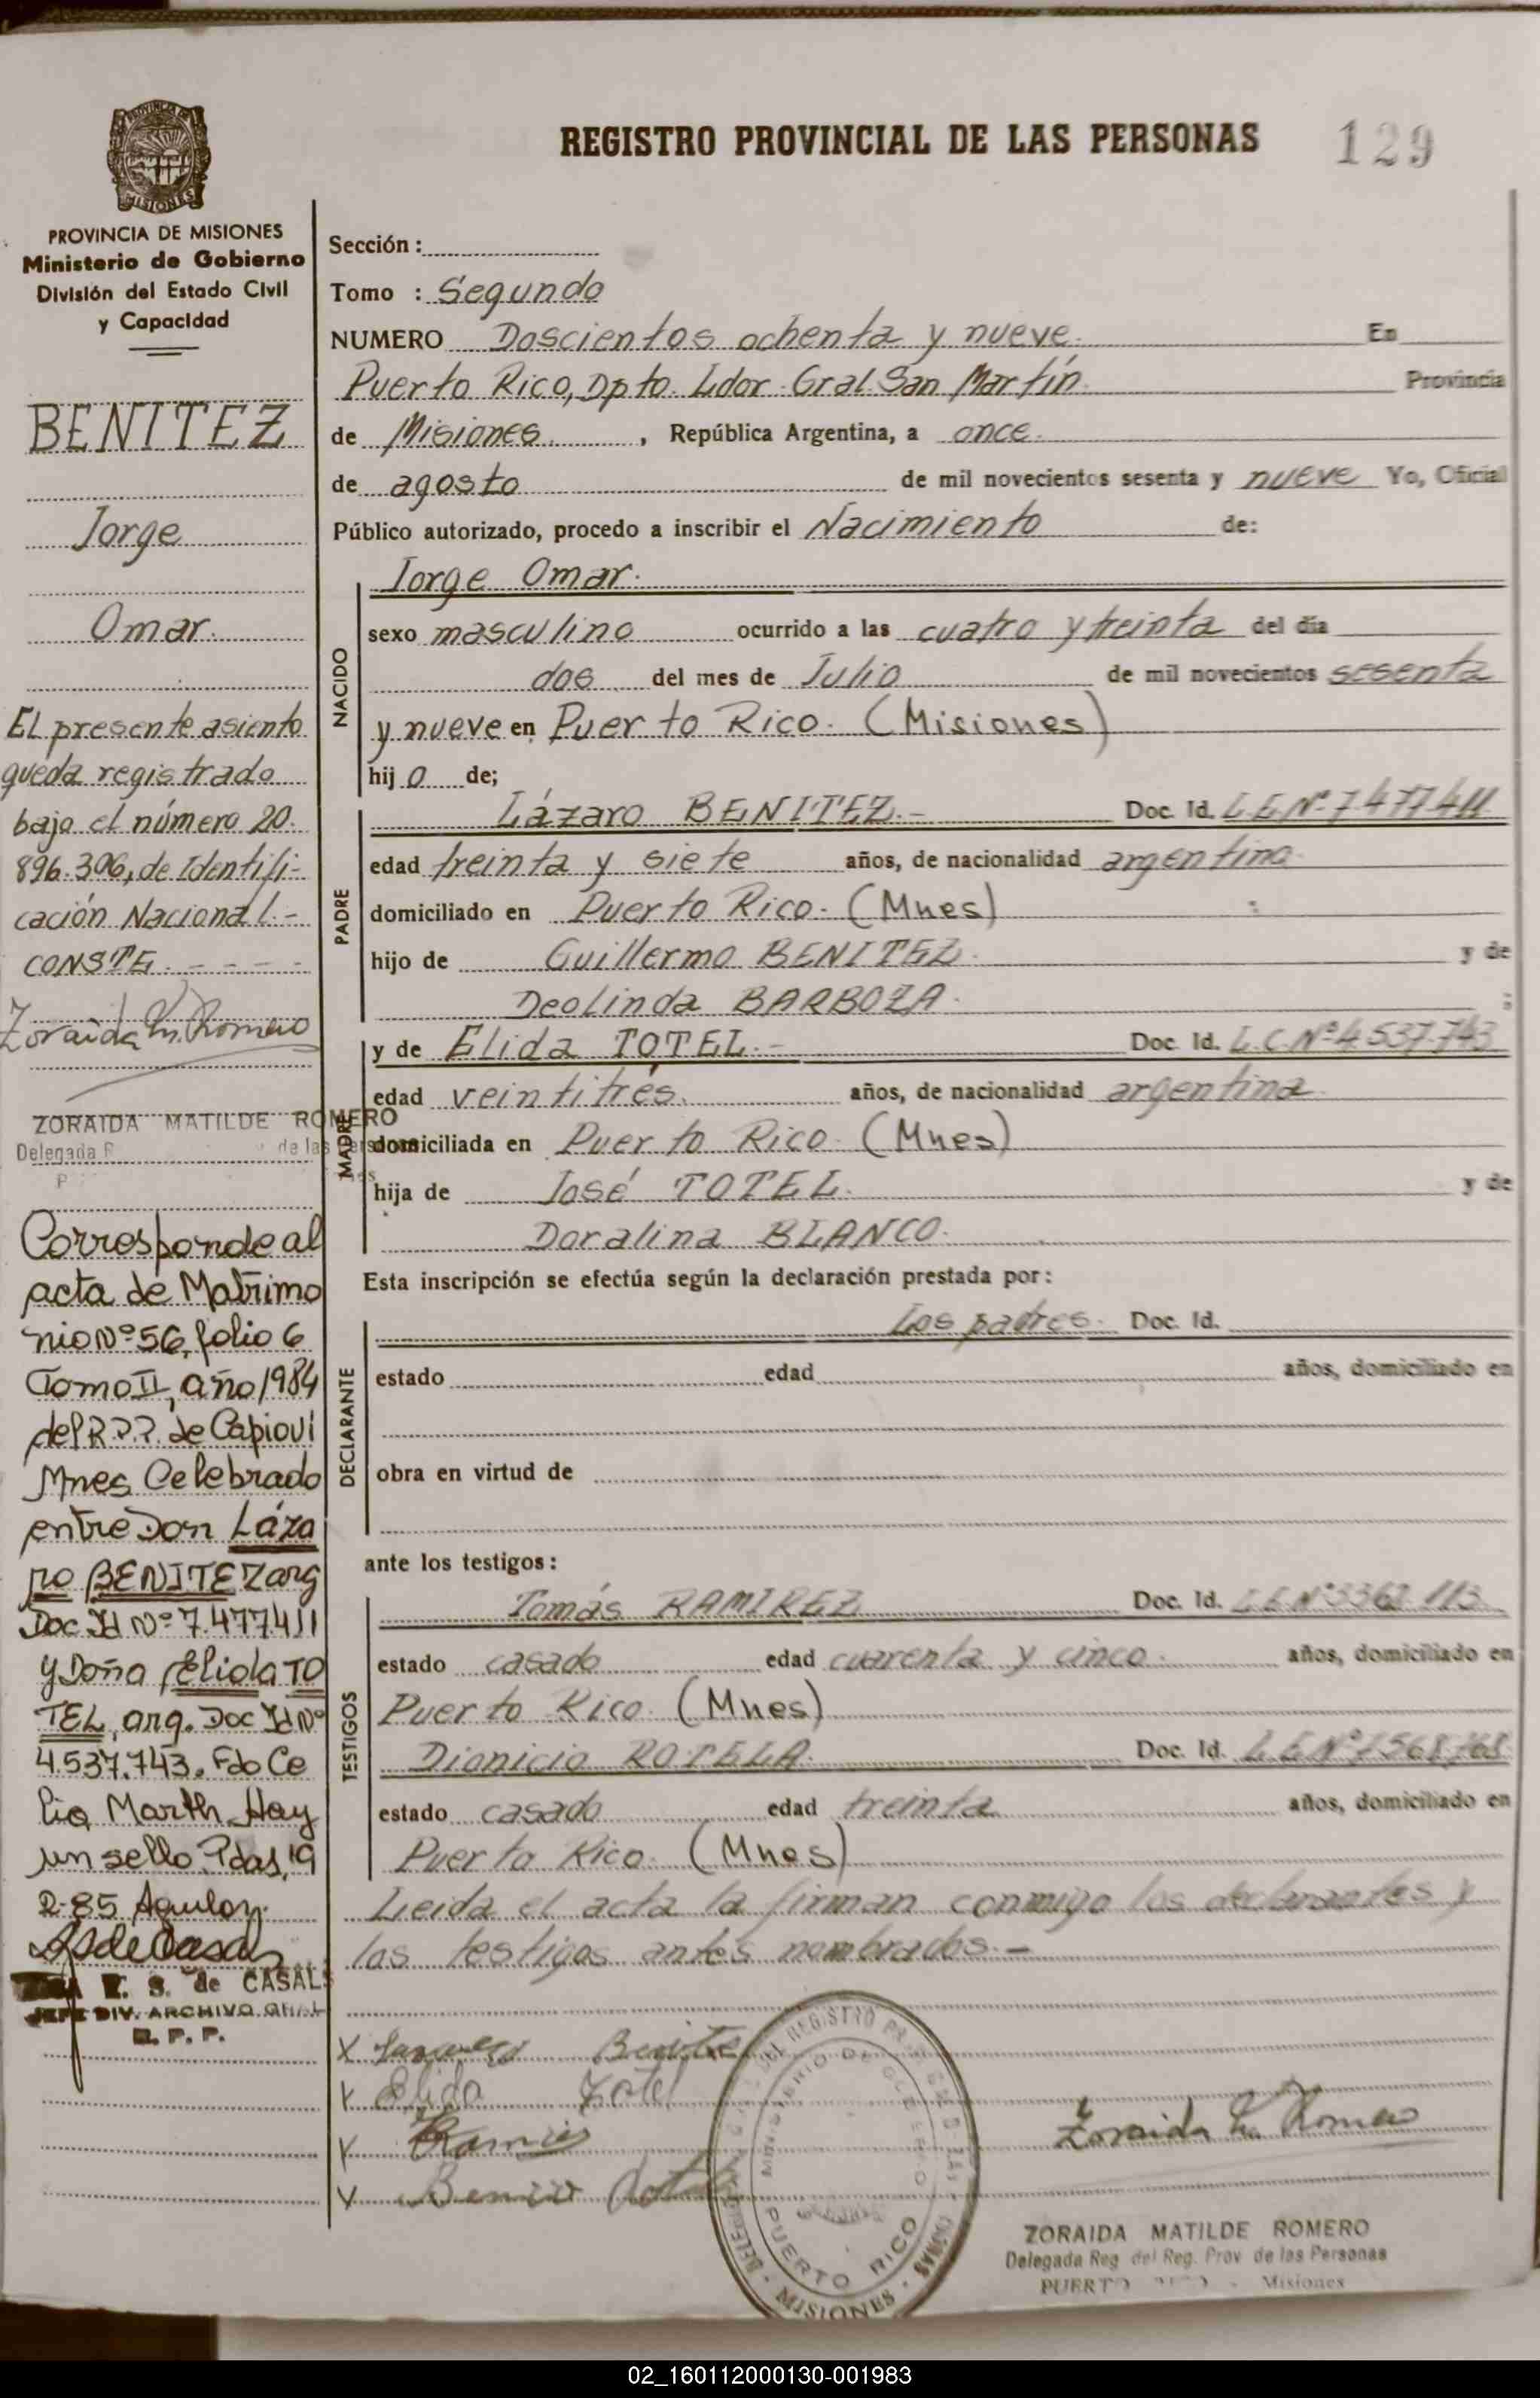 REGISTRO PROVINCIAL DE LAS PERSONAS
129
PROVINCIA DE MISIONES
Ministerio de Gobierno
División del Estado Civil
y Capacidad
BENITEZ
Jorge
Omar.
El presente asiento
queda registrado
bajo el número 20.
896.306, de Identifi-
cación Nacional.-
CONSTE. - - - -
Zoraida M. Romero
ZORAIDA MATILDE ROMERO
Delegada R de las Personas
Corresponde al
acta de Matrimo
nio Nº 56, folio 6
Tomo II, año 1984
del R.P.P. de Capioví
Mnes Celebrado
entre Don Láza
ro BENITEZ arg
Doc Id Nº 7.477.411
y Doña Elida TO
TEL, arg. Doc Id Nº
4.537.743. Fdo Ce
lia Marth Hay
un sello. Pdas, 19
2-85
E. S. de CASALS
JEFE DIV. ARCHIVO GRAL
R. P. P.
Sección :
Tomo : Segundo
NUMERO Doscientos ochenta y nueve. En
Puerto Rico, Dpto. Ldor. Gral. San Martín. Provincia
de Misiones. , República Argentina, a once.
de agosto de mil novecientos sesenta y nueve Yo, Oficial
Público autorizado, procedo a inscribir el Nacimiento de:
Jorge Omar.
NACIDO
sexo masculino ocurrido a las cuatro y treinta del día
dos del mes de Julio de mil novecientos sesenta
y nueve en Puerto Rico. (Misiones)
hij o de;
PADRE
Lázaro BENITEZ.- Doc. Id. L.E.Nº.7477411
edad treinta y siete años, de nacionalidad argentina.
domiciliado en Puerto Rico. (Mnes)
hijo de Guillermo BENITEZ. y de
Deolinda BARBOZA. ;
MADRE
y de Elida TOTEL.- Doc. Id. L.C.Nº4.537.743
edad veintitrés. años, de nacionalidad argentina.
domiciliada en Puerto Rico. (Mnes)
hija de José TOTEL. y de
Doralina BLANCO.
Esta inscripción se efectúa según la declaración prestada por:
DECLARANTE
Los padres. Doc. Id.
estado edad años, domiciliado en
obra en virtud de
ante los testigos:
TESTIGOS
Tomás RAMIREZ Doc. Id. L.E.Nº3362.113
estado casado edad cuarenta y cinco. años, domiciliado en
Puerto Rico. (Mnes)
Dionicio ROTELA. Doc. Id. L.E.Nº7568768
estado casado edad treinta años, domiciliado en
Puerto Rico. (Mnes)
Leida el acta la firman conmigo los declarantes y
los testigos antes nombrados.-
X Benite
X Elida Totel
X Ramires
X
Zoraida M. Romero
PUERTO RICO
MISIONES
ZORAIDA MATILDE ROMERO
Delegada Reg. del Reg. Prov. de las Personas
PUERTO RICO - Misiones
02_160112000130-001983